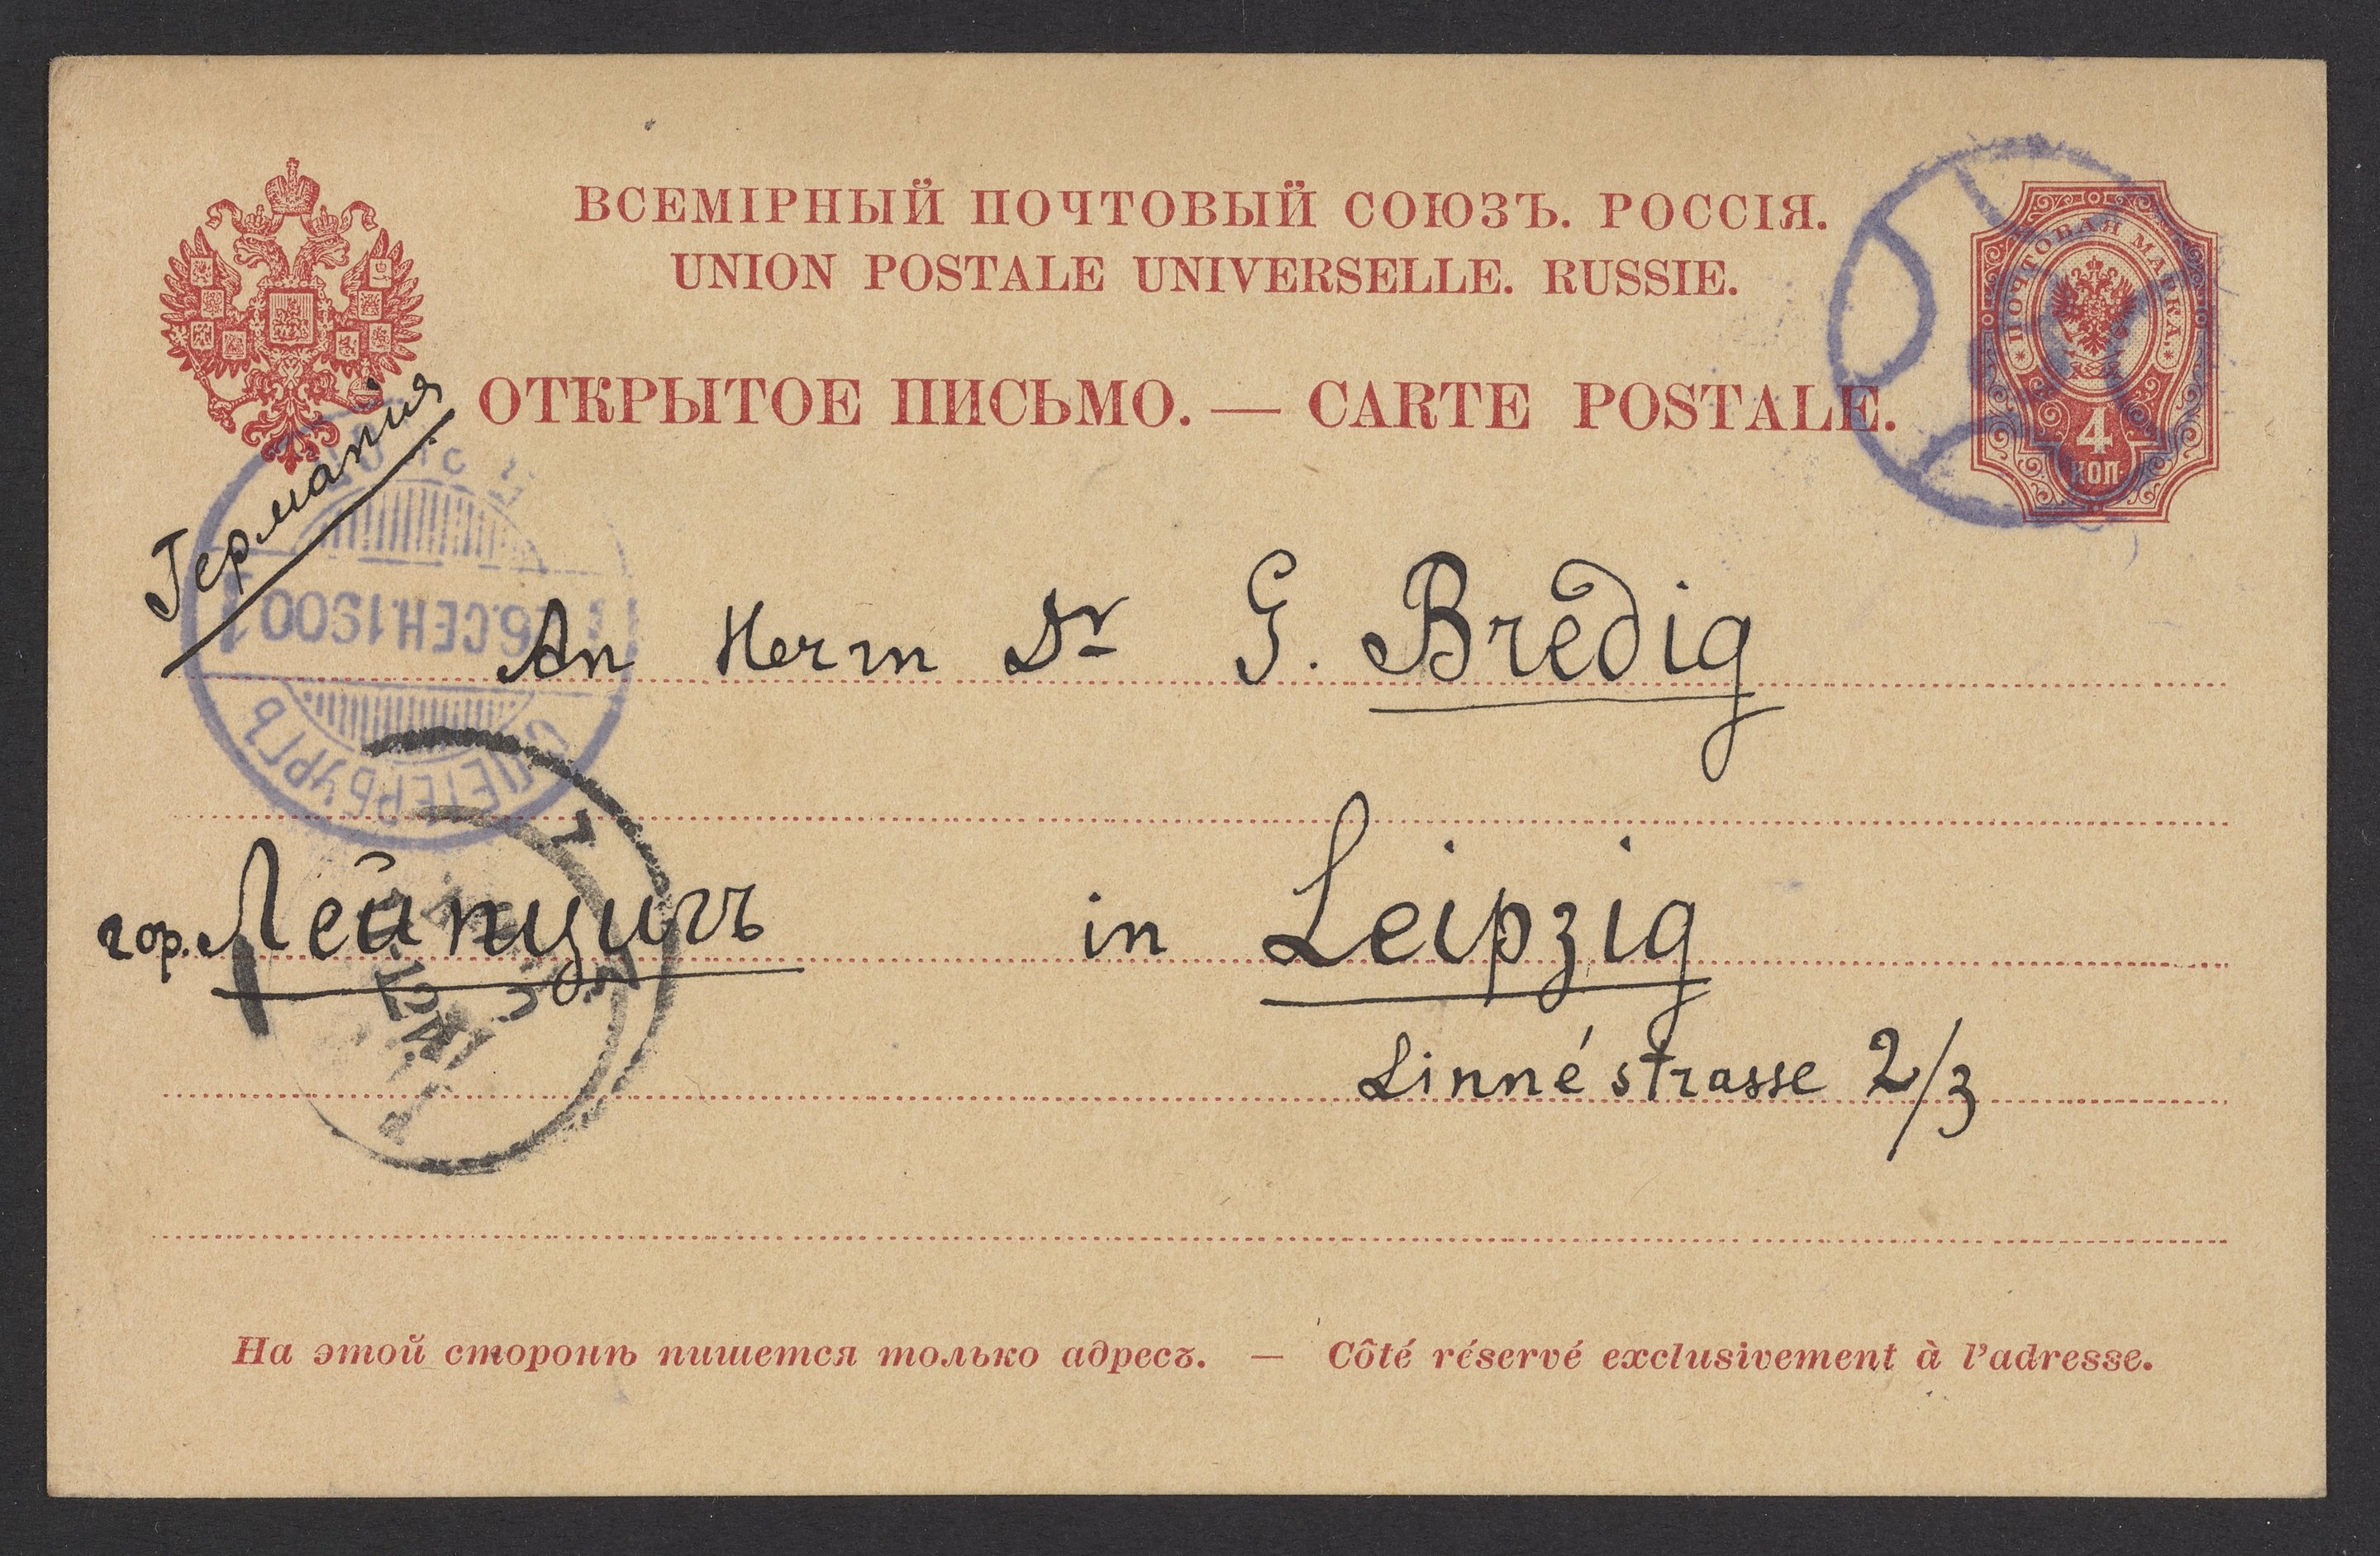 ВСЕМІРНЫЙ ПОЧТОВЫЙ СОЮЗЪ. РОССІЯ.
UNION POSTALE UNIVERSELLE. RUSSIE.
ОТКРЫТОЕ ПИСЬМО. — CARTE POSTALE.
ПОЧТОВАЯ МАРКА.
4
КОП
Германия
6.СЕН.1900
С ПЕТЕРБУРГЪ
An Herrn Dr G. Bredig
гор. Лейпцигъ in Leipzig
Linnéstrasse 2/3
На этой сторонѣ пишется только адресъ. — Côté réservé exclusivement à l'adresse.